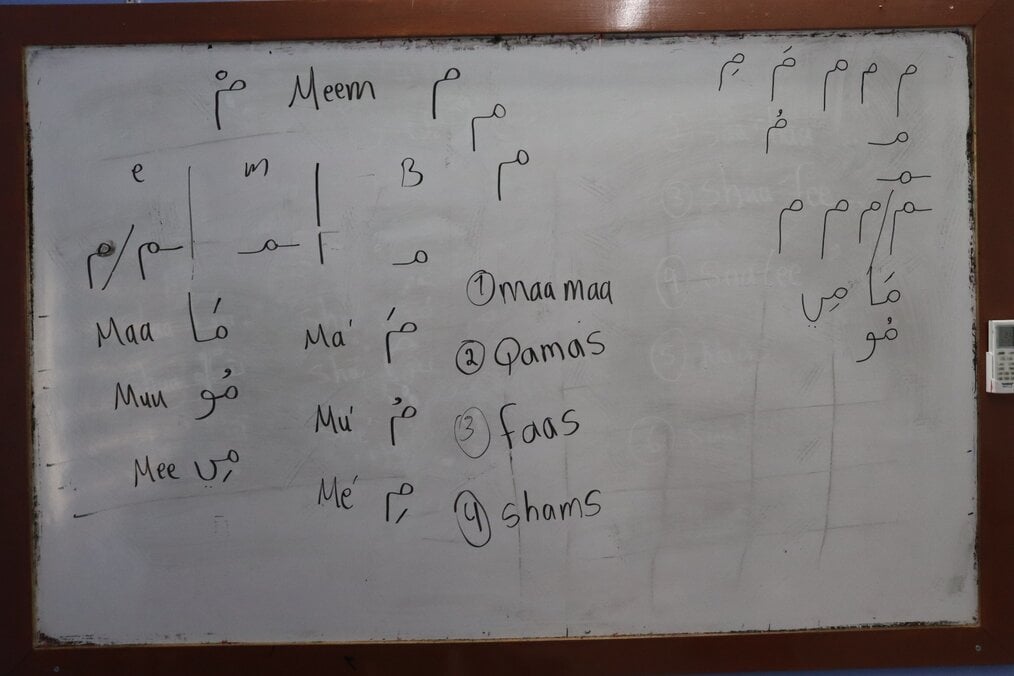 مْ Meem م
م
م
e m B
م/ـم ـمـ مـ
Maa مَا
Muu مُو
Mee مِي
Ma' مَ
Mu' مُ
Me' مِ
① maa maa
② Qamas
③ faas
④ shams
م م م مَ مِ
مـ مُ
ـمـ
ـم/م م م
مَا مِي
مُو